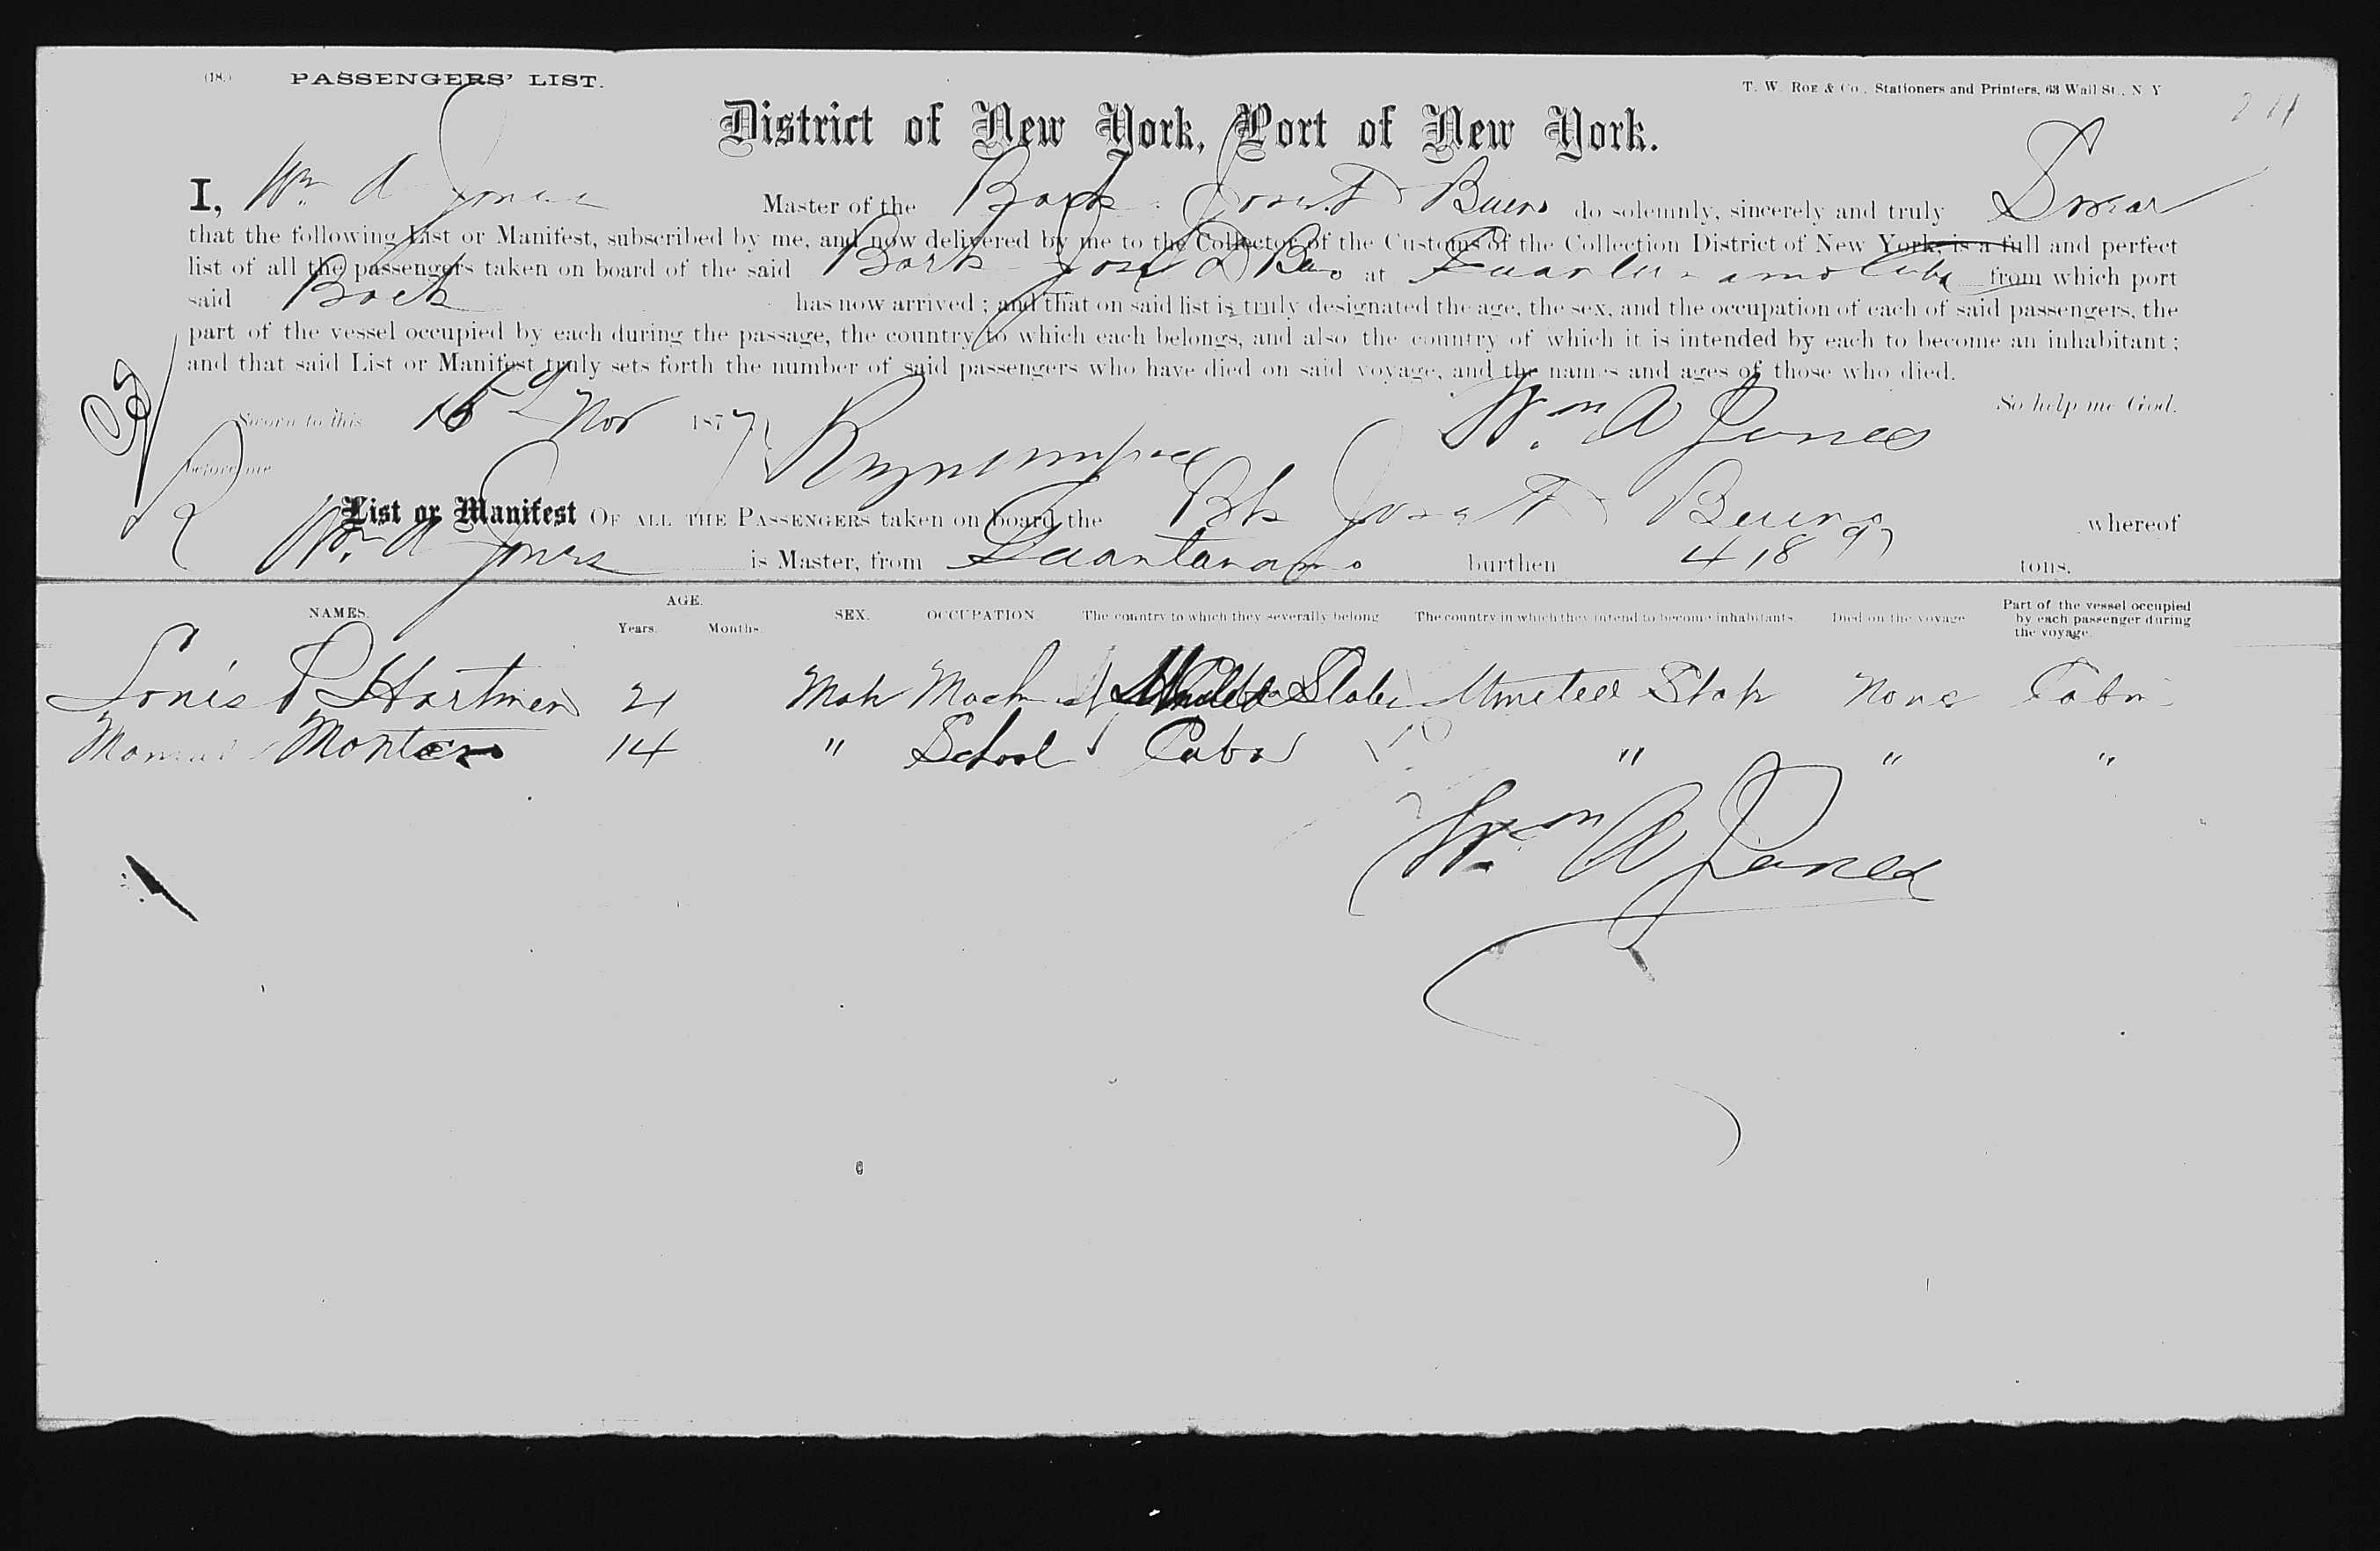 (18.) PASSENGERS' LIST. T. W. ROE & Co., Stationers and Printers, 63 Wall St., N. Y
District of New York, Port of New York.
I, Wm A Jones Master of the Bark Bueno do solemnly, sincerely and truly Swear
that the following List or Manifest, subscribed by me, and now delivered by me to the Collector of the Customs of the Collection District of New York, is a full and perfect
list of all the passengers taken on board of the said Bark at Cuba from which port
said Bark has now arrived ; and that on said list is truly designated the age, the sex, and the occupation of each of said passengers, the
part of the vessel occupied by each during the passage, the country to which each belongs, and also the country of which it is intended by each to become an inhabitant ;
and that said List or Manifest truly sets forth the number of said passengers who have died on said voyage, and the names and ages of those who died.
So help me God.
Sworn to this Nov 1877 Wm A Jones
before me
List or Manifest OF ALL THE PASSENGERS taken on board the Bk Bueno whereof
Wm A Jones is Master, from Guantanamo burthen 418 97 tons.
NAMES. AGE. Years. Months. SEX. OCCUPATION. The country to which they severally belong The country in which they intend to become inhabitants. Died on the voyage Part of the vessel occupied by each passenger during the voyage.
Louis P Hartmen 21 Male States United State None Cabin
Montero 14 " School Cuba " " "
Wm A Jones